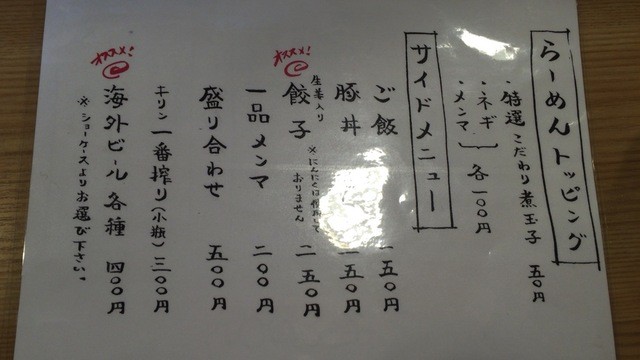 らーめんトッピング
・特選こだわり煮玉子 五〇円
・ネギ
・メンマ
各一〇〇円
サイドメニュー
ご飯 一五〇円
豚丼 三五〇円
オススメ!
生姜入り
餃子 二五〇円
※にんにくは使用して
おりません
一品メンマ 二〇〇円
盛り合わせ 五〇〇円
キリン一番搾り(小瓶) 三〇〇円
オススメ!
海外ビール各種 四〇〇円
※ショーケースよりお選び下さい。